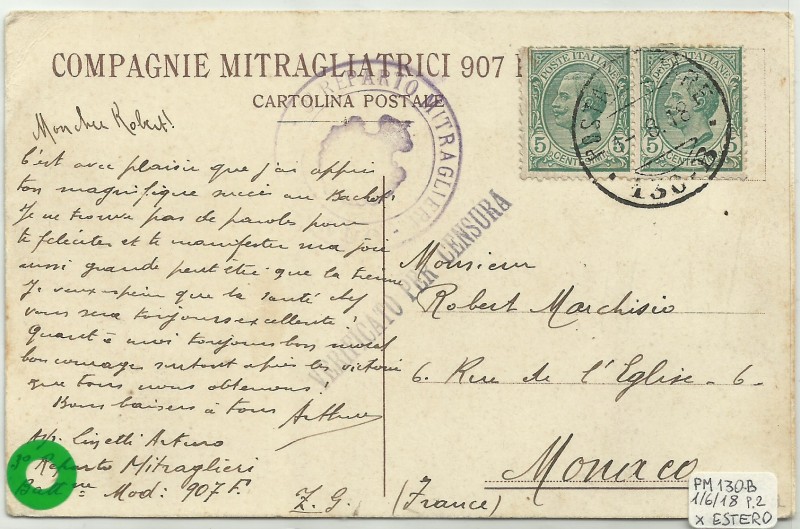 COMPAGNIE MITRAGLIATRICI 907
CARTOLINA POSTALE
REPARTO MITRAGLIERI
POSTE ITALIANE
5 CENTESIMI 5
POSTE ITALIANE
5 CENTESIMI 5
POSTA MILITARE
130-B
VERIFICATO PER CENSURA
Mon cher Robert!
C'est avec plaisir que j'ai appris
ton magnifique succès au Bachot!
Je ne trouve pas de paroles pour
te féliciter et te manifester ma joie
aussi grande peut être que la tienne
Je veux espérer que la santé chez
vous sera toujours excellente!
Quant à moi toujours bon moral
bon courage surtout après les victoires
que tous nous obtenons!
Bons baisers à tous Arthur
Arturo
3º Reparto Mitraglieri
Batt. Mod: 907 F.
Z. G.
Monsieur
Robert Marchisio
6. Rue de l'Eglise - 6 -
Monaco
(France)
PM 130-B
1/6/18 P.2
x ESTERO